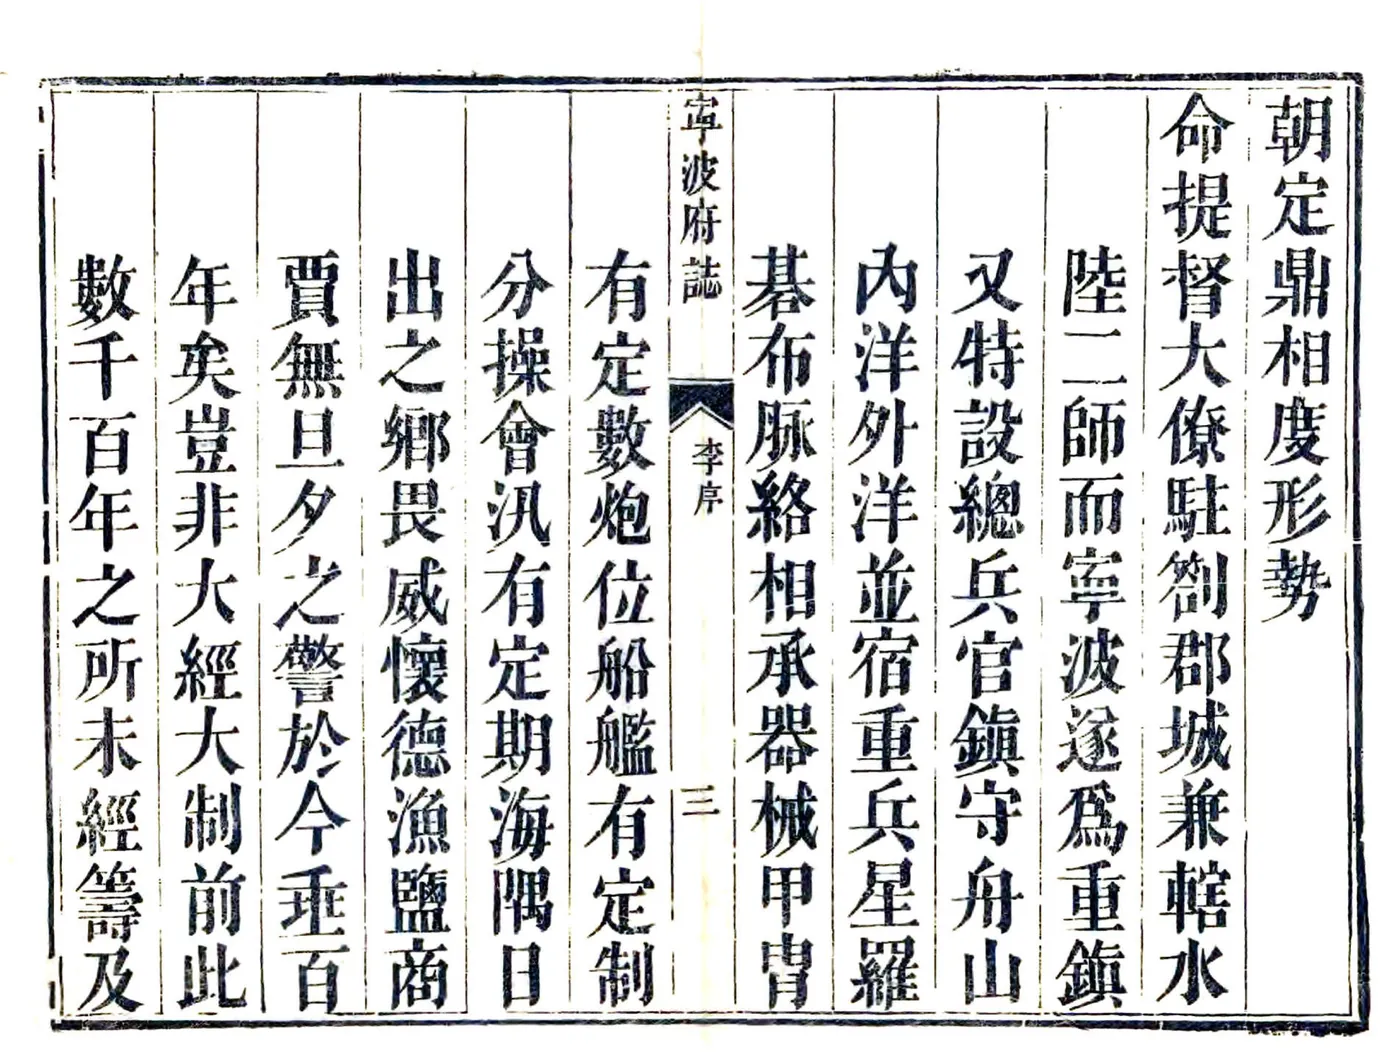 朝定鼎相度形勢
命提督大僚駐劄郡城兼轄水
陸二師而寧波遂爲重鎭
又特設總兵官鎭守舟山
內洋外洋並宿重兵星羅
碁布脈絡相承器械甲冑
寧波府誌
李序
三
有定數炮位船艦有定制
分操會汛有定期海隅日
出之鄉畏威懷德漁鹽商
賈無旦夕之警於今垂百
年矣豈非大經大制前此
數千百年之所未經籌及